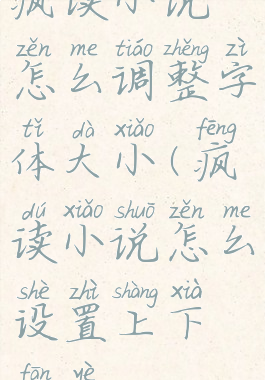 疯读小说
zěn me tiáo zhěng zì
怎么调整字
tǐ dà xiǎo fēng
体大小(疯
dú xiǎo shuō zěn me
读小说怎么
shè zhì shàng xià
设置上下
fān yè